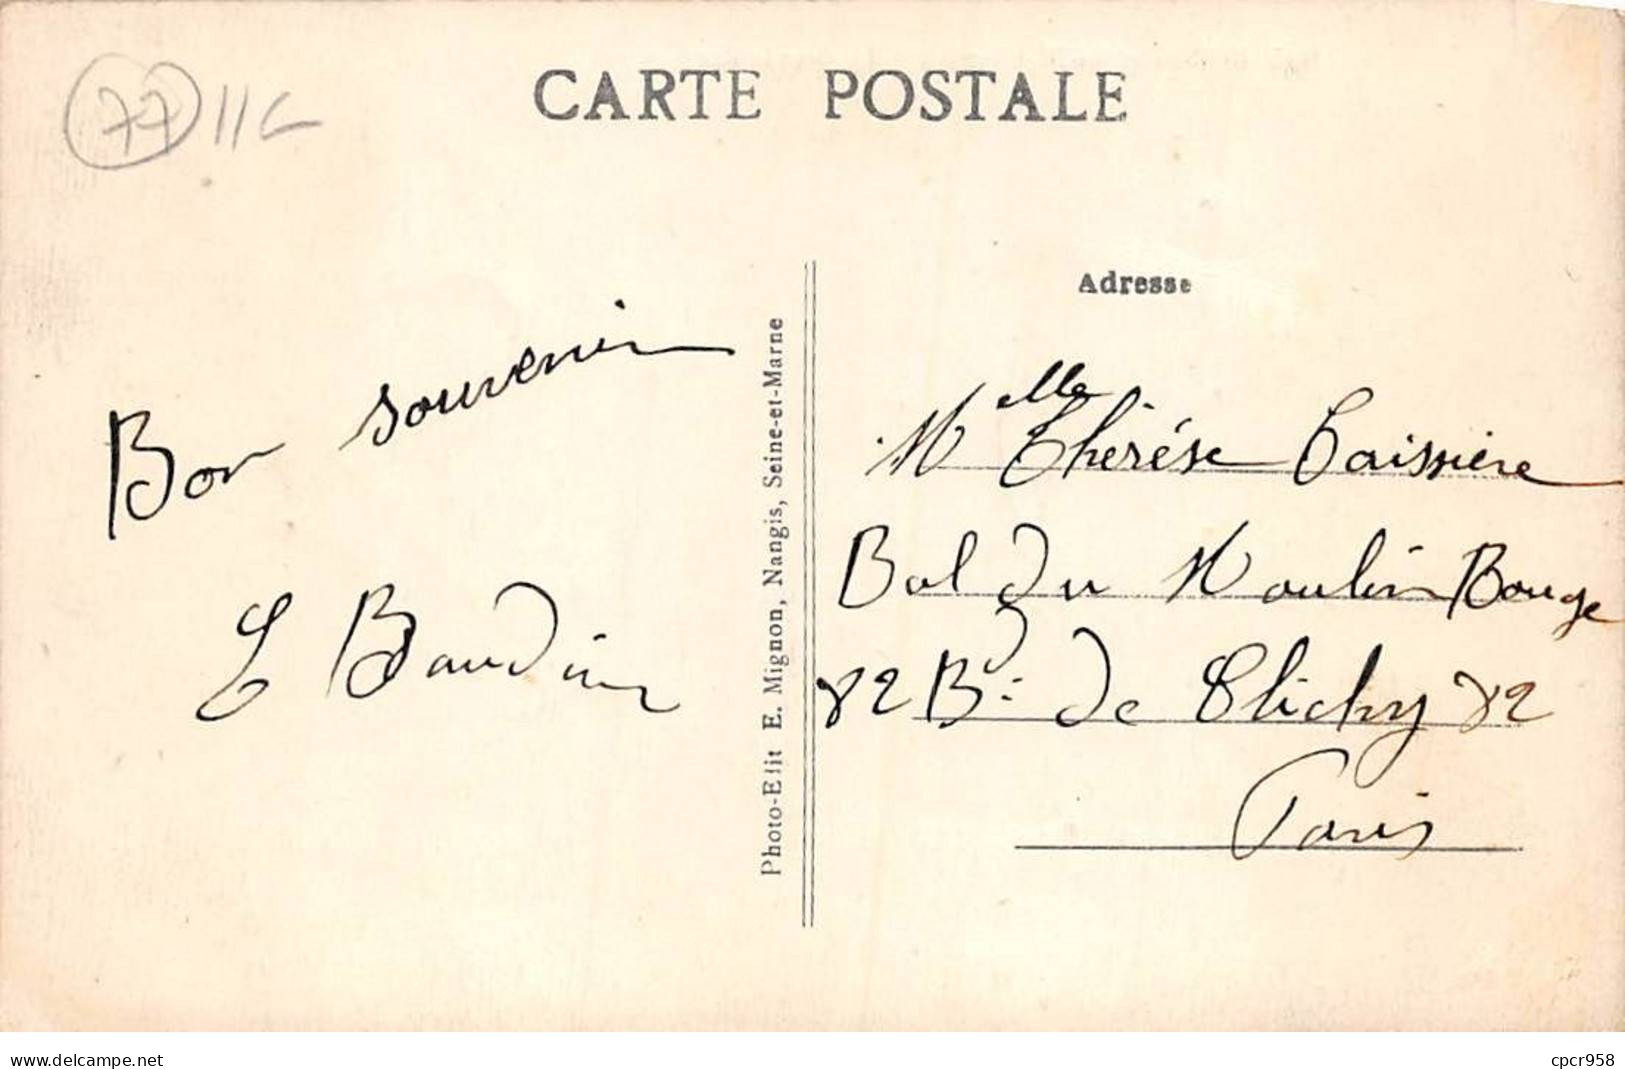 77 11C
CARTE POSTALE
Bon souvenir
E Baudin
Photo-Elit E. Mignon, Nangis, Seine-et-Marne
Adresse
Melle Thérése Caissière
Bal du Moulin Rouge
82 Bd: de Clichy 82
Paris
www.delcampe.net
cpcr958